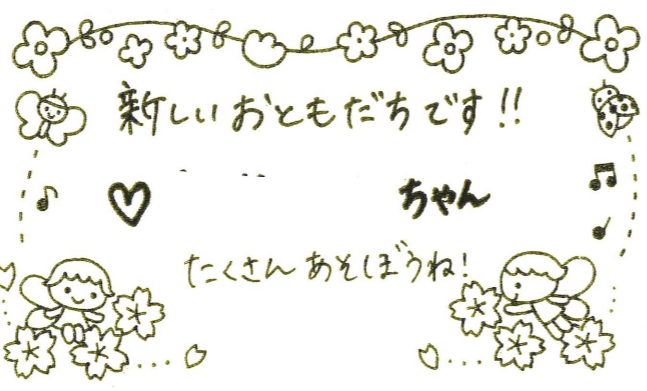 新しいおともだちです!!
♡ ちゃん
たくさんあそぼうね!